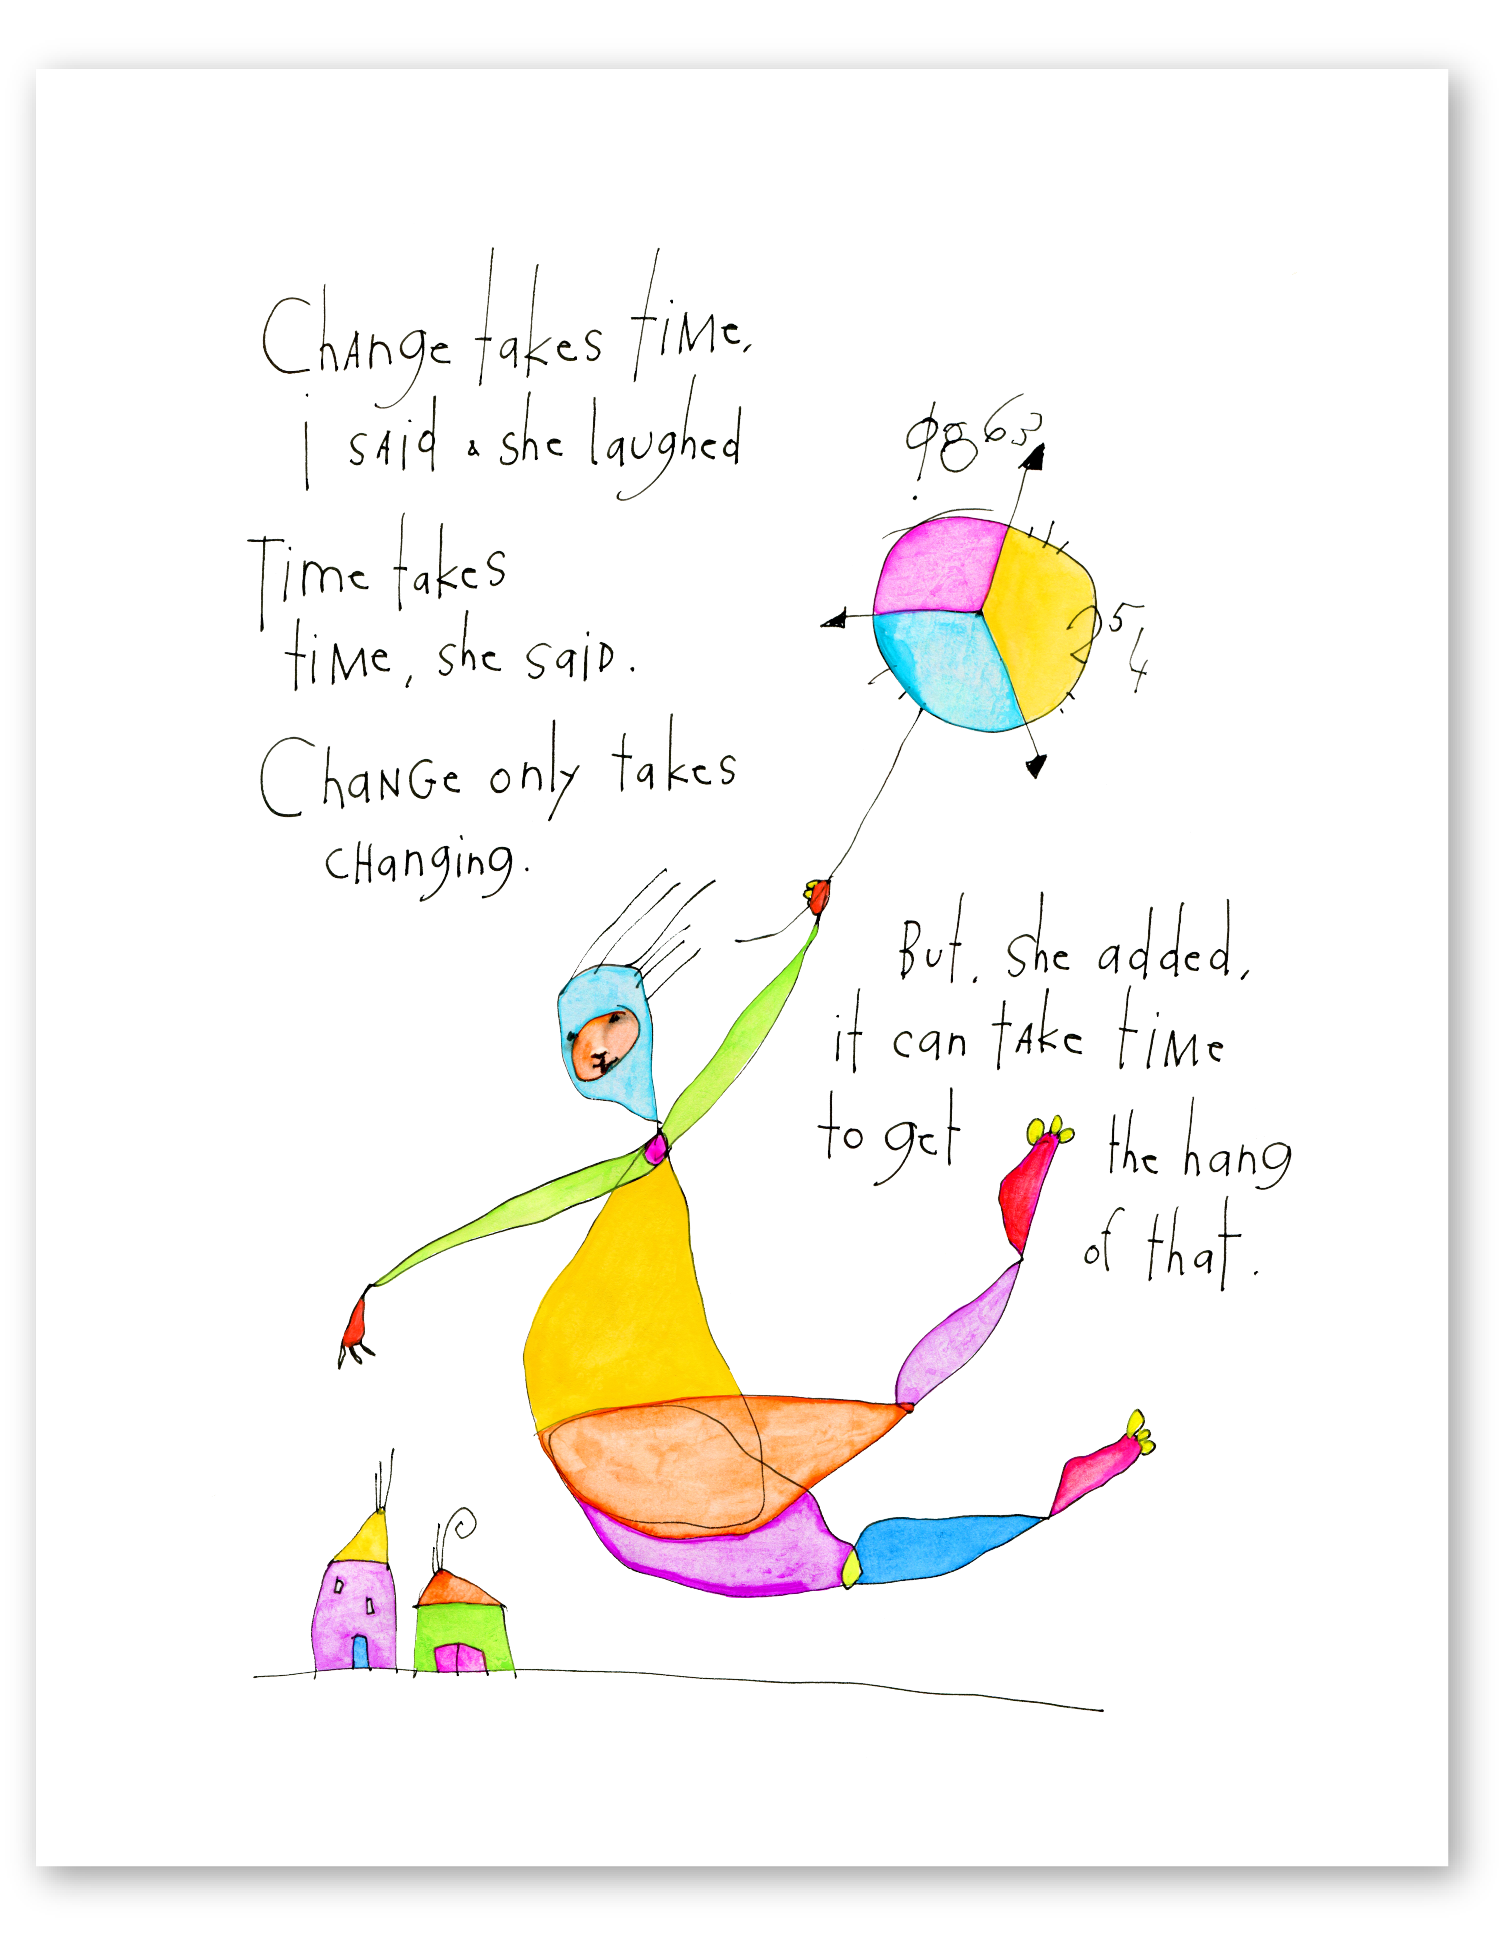 Change takes time,
i said & she laughed
Time takes
time, she said.
Change only takes
changing.
863
254
But, she added,
it can take time
to get the hang
of that.